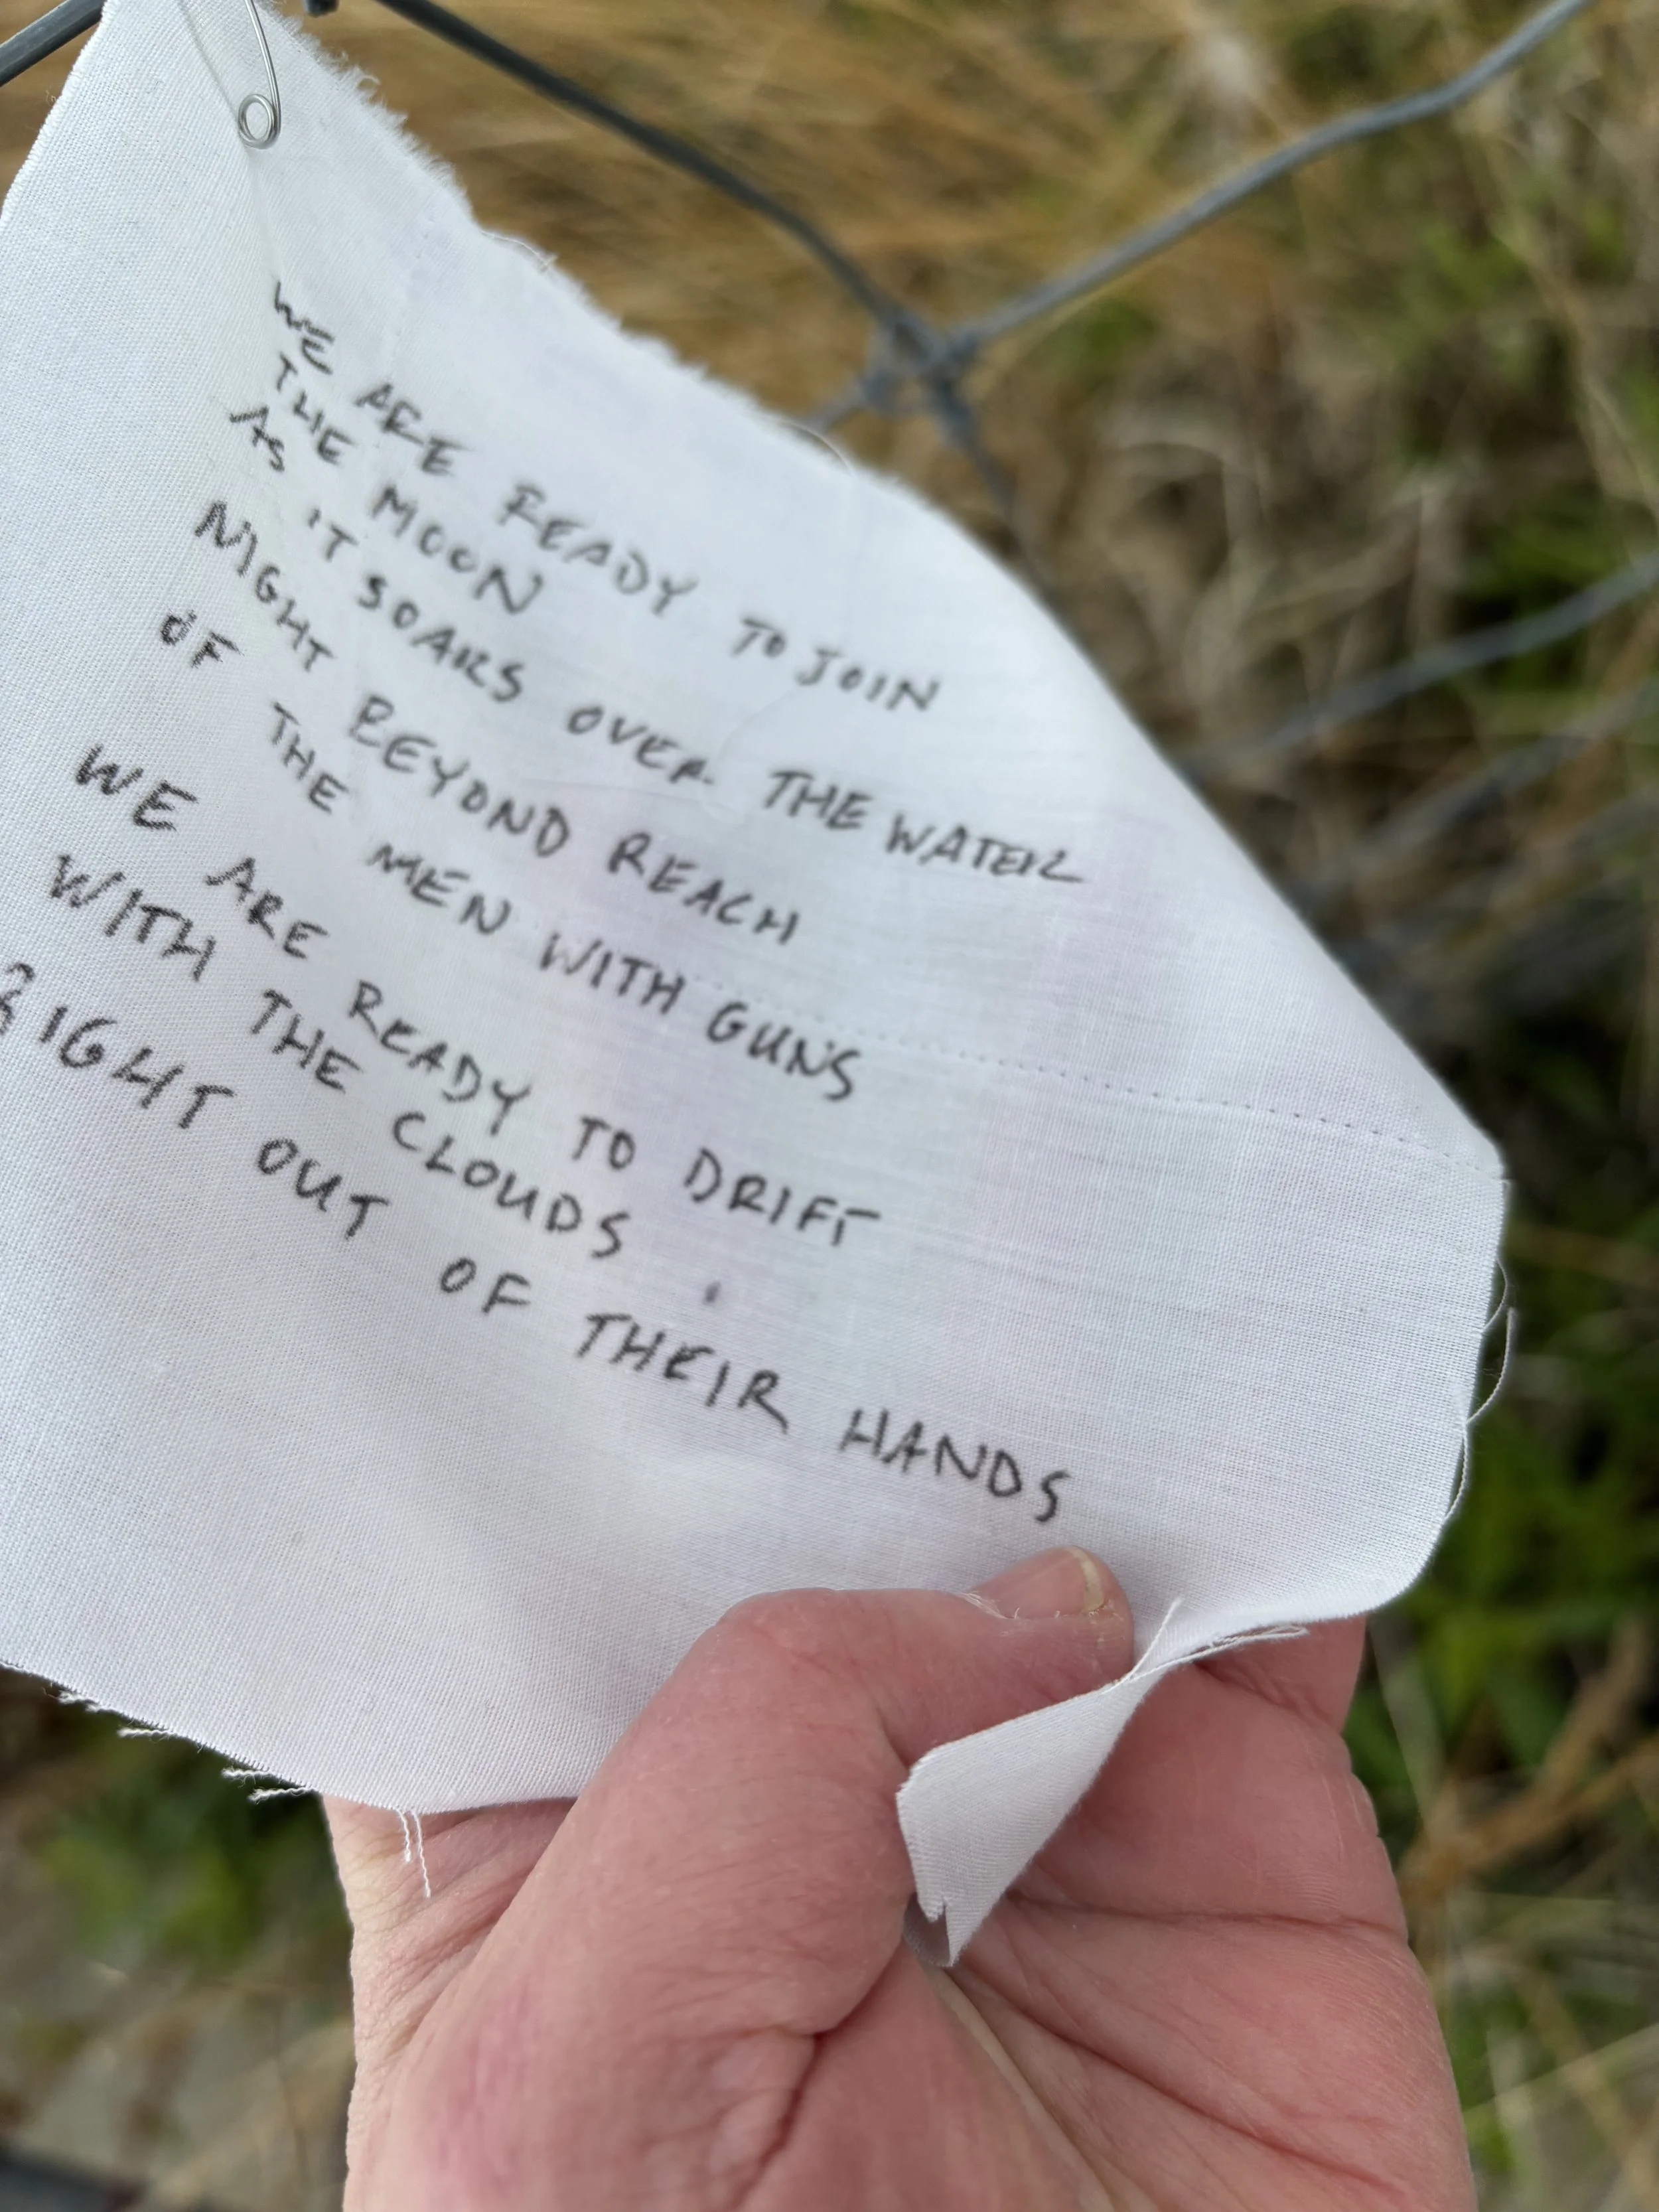 WE ARE READY TO JOIN
THE MOON
AS IT SOARS OVER THE WATER
NIGHT BEYOND REACH
OF THE MEN WITH GUNS
WE ARE READY TO DRIFT
WITH THE CLOUDS
RIGHT OUT OF THEIR HANDS